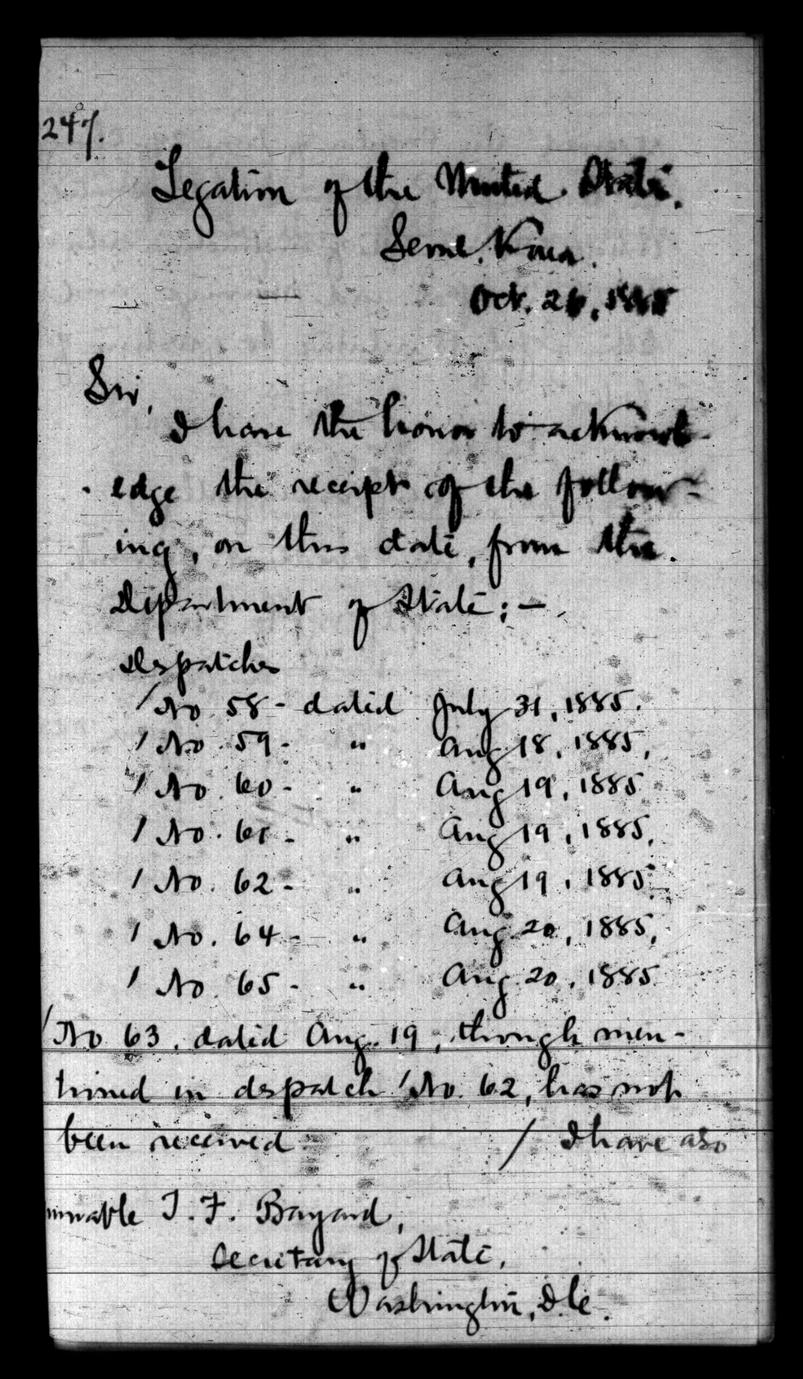 247.
Legation of the United States.
Seoul, Korea.
Oct. 26, 1885
Sir,
I have the honor to acknowl-
edge the receipt of the follow-
ing, on this date, from the
Department of State; —
Despatches
No 58 - dated July 31, 1885.
No. 59 - " Aug 18, 1885,
No. 60 - " Aug 19, 1885
No. 61 - " Aug 19, 1885,
No. 62 - " Aug 19, 1885,
No. 64 - " Aug 20, 1885,
No. 65 - " Aug 20, 1885
No 63, dated Aug. 19, though men-
tioned in despatch No. 62, has not
been received / I have also
norable T. F. Bayard,
Secretary of State,
Washington, D.C.